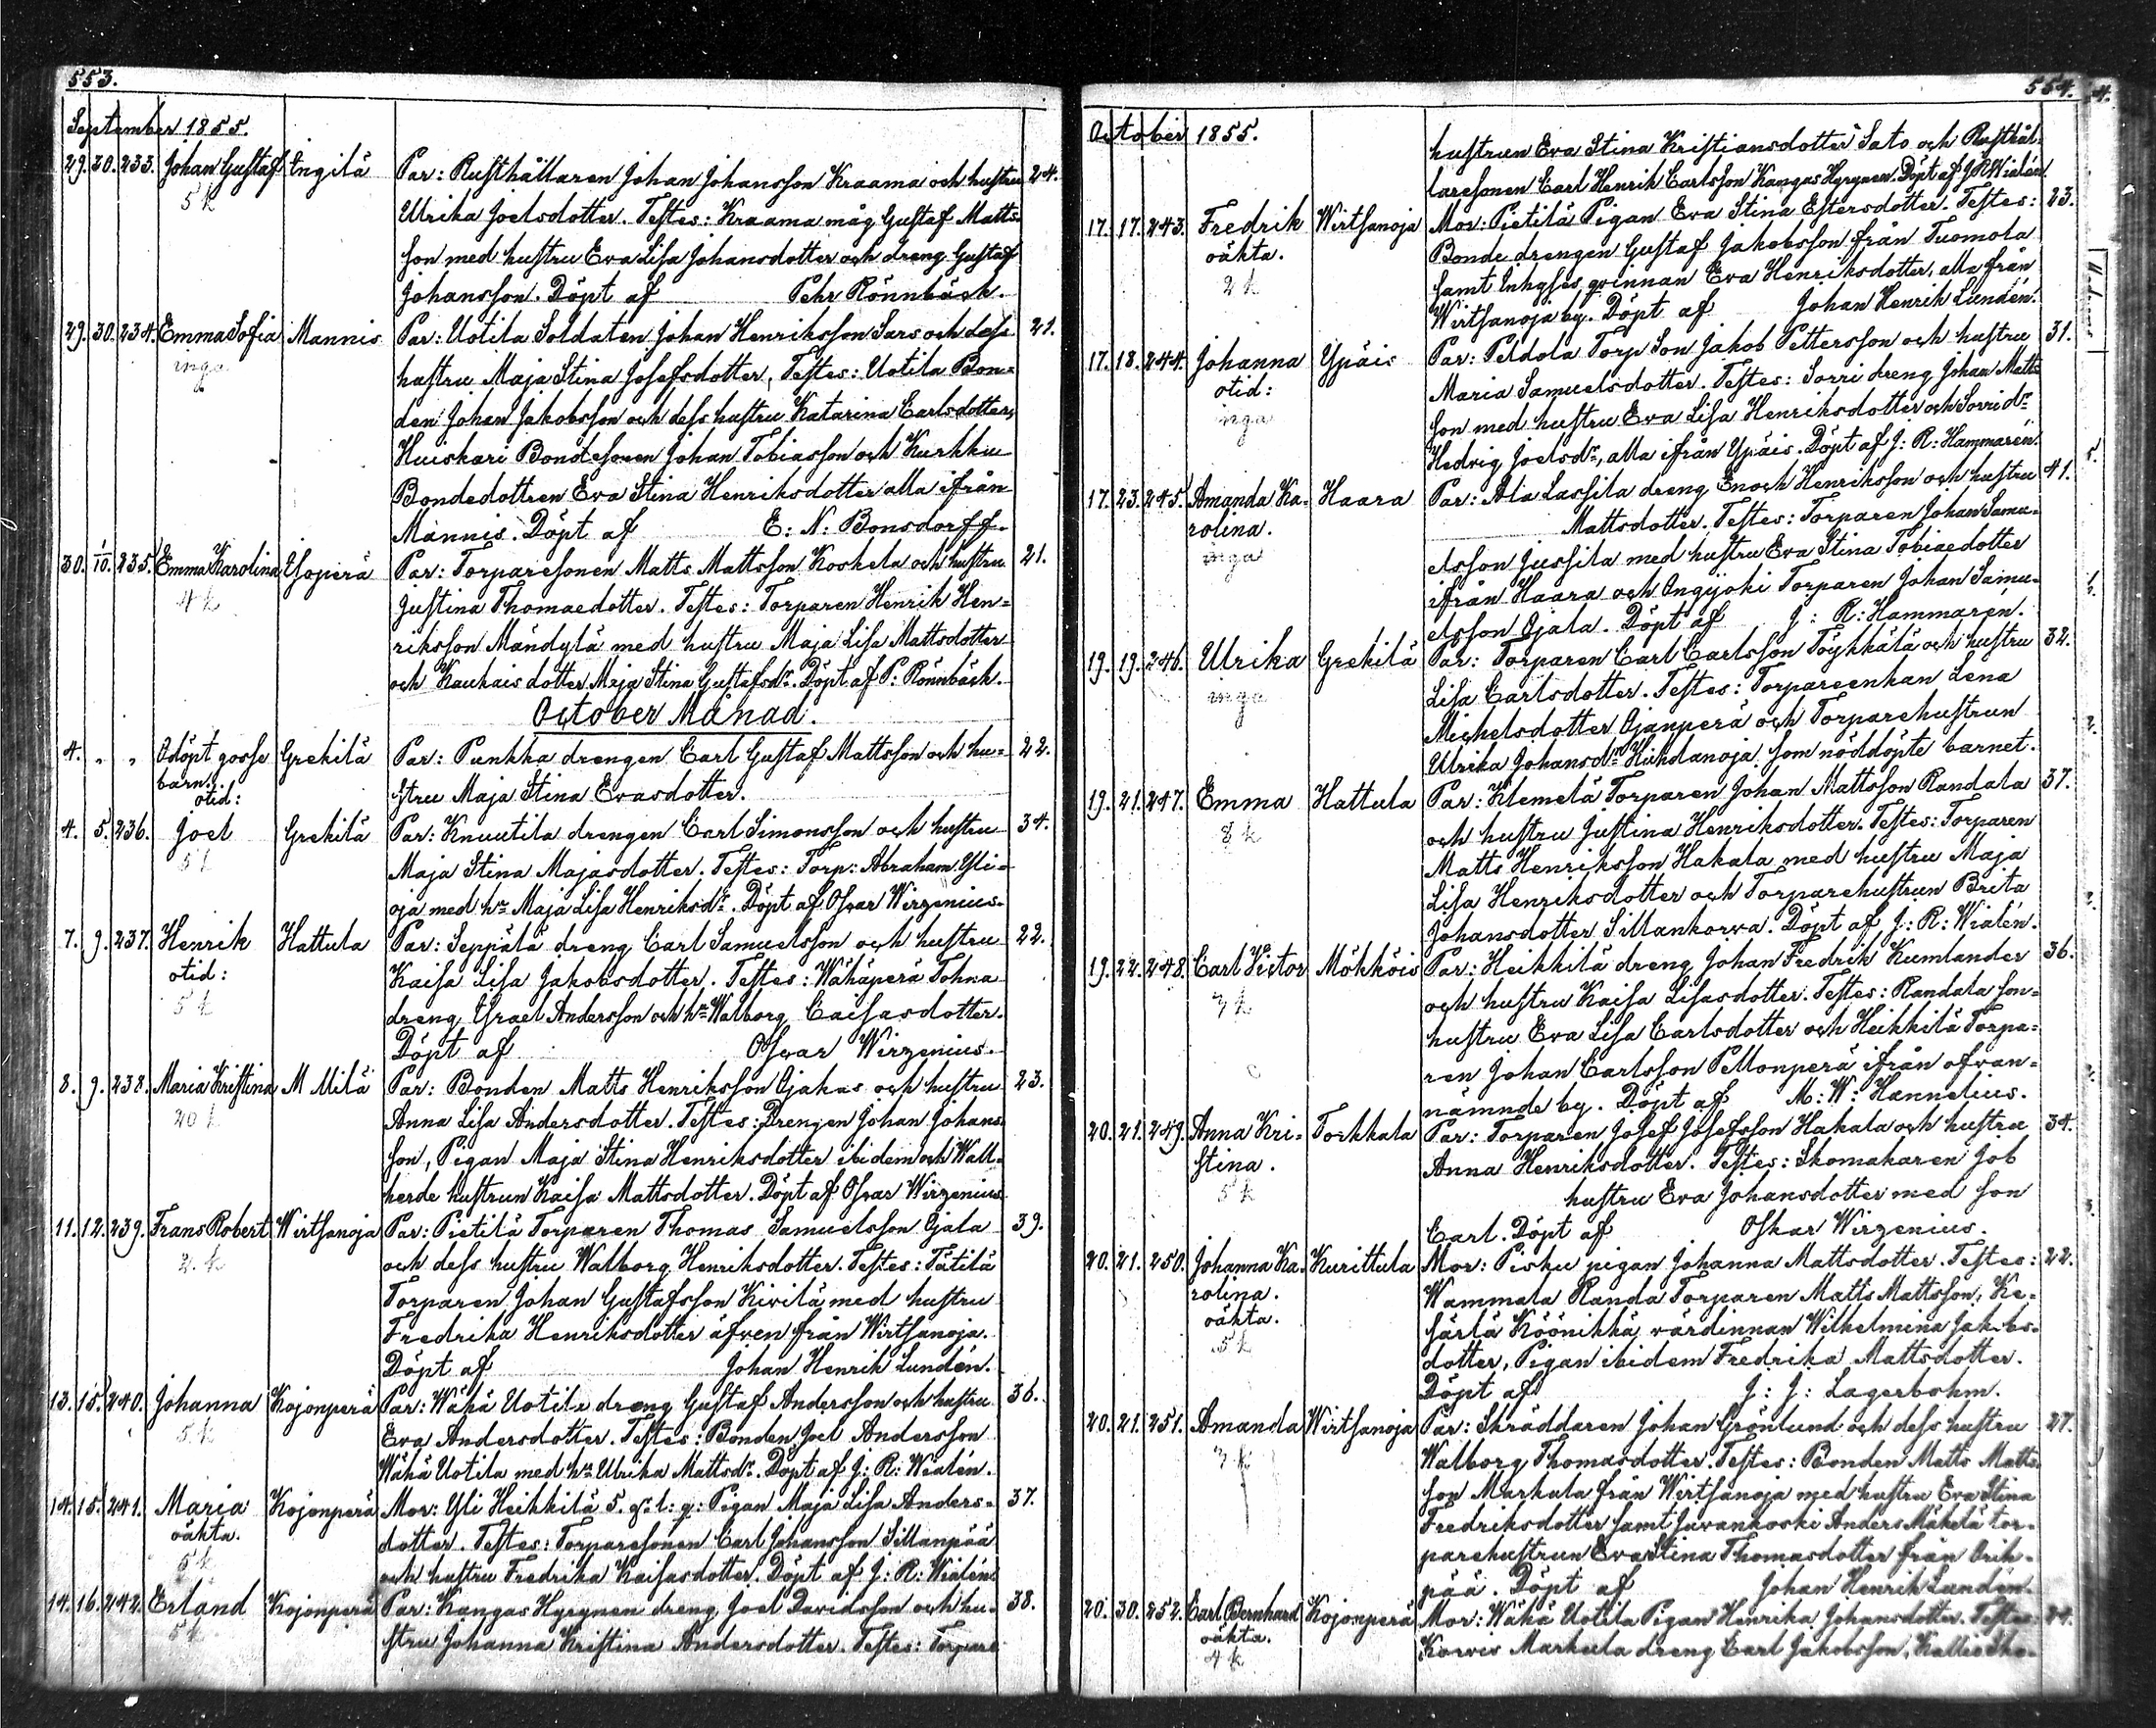 553.
September 1855.
29. 30. 233. Johan Gustaf Engilä Par: Rusthållaren Johan Johansson Kraama och hustru 24.
5 k Ulrika Joelsdotter. Testes: Kraama måg Gustaf Matts-
son med hustru Eva Lisa Johansdotter och dreng Gustaf
Johansson. Döpt af Pehr Rönnbäck.
29. 30. 234. Emma Sofia Mannis Par: Uotila Soldaten Johan Henriksson Sars och dess 21.
inga hustru Maja Stina Josefsdotter, Testes: Uotila Bon-
den Johan Jakobsson och dess hustru Katarina Carlsdotter,
Huiskari Bondesonen Johan Tobiasson och Kurkku
Bondedottren Eva Stina Henriksdotter alla ifrån
Mannis. Döpt af E: N: Bonsdorff.
30. 1/10. 235. Emma Karolina Isoperä Par: Torparesonen Matts Mattsson Koskela och hustru 21.
4 k Justina Thomaedotter. Testes: Torparen Henrik Hen-
riksson Mändylä med hustru Maja Lisa Mattsdotter
och Kauhais dotter Maja Stina Gustafsdr. Döpt af P: Rönnbäck.
October Månad.
4. " " Odöpt gosse Grekilä Par: Punkka drengen Carl Gustaf Mattsson och hu- 22.
barn. otid: stru Maja Stina Evasdotter.
4. 5. 236. Joel Grekilä Par: Knuutila drengen Carl Simonsson och hustru 34.
5 k Maja Stina Majasdotter. Testes: Torp: Abraham Yli-
oja med hu Maja Lisa Henriksdr. Döpt af Osvar Wirzenius.
7. 9. 237. Henrik Hattula Par: Seppälä dreng Carl Samuelsson och hustru 22.
otid: Kaisa Lisa Jakobsdotter. Testes: Wähäperä Tohna
5 k dreng Israel Andersson och hu Walborg Caisasdotter.
Döpt af Osvar Wirzenius.
8. 9. 238. Maria Kristina M Milä Par: Bonden Matts Henriksson Ojakas och hustru 23.
20 k Anna Lisa Andersdotter. Testes: Drengen Johan Johans-
son, Pigan Maja Stina Henriksdotter ibidem och Wall-
herde hustrun Kaisa Mattsdotter. Döpt af Osvar Wirzenius.
11. 12. 239. Frans Robert Wirtsanoja Par: Pietilä Torparen Thomas Samuelsson Ojala 39.
2. k och dess hustru Walborg Henriksdotter. Testes: Tätilä
Torparen Johan Gustafsson Kivilä med hustru
Fredrika Henriksdotter äfven från Wirtsanoja.
Döpt af Johan Henrik Lundén.
13. 15. 240. Johanna Kojonperä Par: Wähä Uotila dreng Gustaf Andersson och hustru 36.
5 k Eva Andersdotter. Testes: Bonden Joel Andersson
Wähä Uotila med hu Ulrika Mattsdr. Döpt af J: R: Wialén.
14. 15. 241. Maria Kojonperä Mor: Yli Heikkilä S. q: l: q: Pigan Maja Lisa Anders- 37.
oäkta. dotter. Testes: Torparesonen Carl Johansson Sillanpää
5 k och hustru Fredrika Kaisasdotter. Döpt af J: R: Wialén.
14. 16. 242. Erland Kojonperä Par: Kangas Hyrynen dreng Joel Davidsson och hu- 38.
5 k stru Johanna Kristina Andersdotter. Testes: Torpare
554.
October 1855.
hustrun Eva Stina Kristiansdotter Sato och Rusthål-
laresonen Carl Henrik Carlsson Kangas Hyrynen. Döpt af J R Wialén.
17. 17. 243. Fredrik Wirtsanoja Mor: Pietilä Pigan Eva Stina Estersdotter. Testes: 23.
oäkta. Bonde drengen Gustaf Jakobsson från Tuomola
2 k samt Inhyses qvinnan Eva Henriksdotter, alla från
Wirtsanoja by. Döpt af Johan Henrik Lundén.
17. 18. 244. Johanna Ypäis Par: Peldola Torp Son Jakob Pettersson och hustru 31.
otid: Maria Samuelsdotter. Testes: Sorri dreng Johan Matts-
inga son med hustru Eva Lisa Henriksdotter och Sorri dr
Hedvig Joelsdr, alla ifrån Ypäis. Döpt af J: R: Hammarén.
17. 23. 245. Amanda Ka- Haara Par: Ala Lassila dreng Enoch Henriksson och hustru 41.
rolina. Mattsdotter. Testes: Torparen Johan Samu-
inga elsson Jussila med hustru Eva Stina Tobiaedotter
ifrån Haara och Ongijoki Torparen Johan Samu-
elsson Ojala. Döpt af J: R: Hammarén.
19. 19. 246. Ulrika Grekilä Par: Torparen Carl Carlsson Töykkälä och hustru 32.
inga Lisa Carlsdotter. Testes: Torpareenkan Lena
Michelsdotter Ojanperä och Torparehustrun
Ulrika Johansdr Huhdanoja som nöddöpte barnet.
19. 21. 247. Emma Hattula Par: Klemelä Torparen Johan Mattsson Randala 37.
8 k och hustru Justina Henriksdotter. Testes: Torparen
Matts Henriksson Hakala med hustru Maja
Lisa Henriksdotter och Torparehustrun Brita
Johansdotter Sillankorva. Döpt af J: R: Wialén.
19. 22. 248. Carl Victor Mökköis Par: Heikkilä dreng Johan Fredrik Kumlander 36.
7 k och hustru Kaisa Lisasdotter. Testes: Randala son-
hustru Eva Lisa Carlsdotter och Heikkilä Torpa-
ren Johan Carlsson Pellonperä ifrån ofvan-
nämnde by. Döpt af M: W: Hannelius.
20. 21. 249. Anna Kri- Torkkala Par: Torparen Josef Josefsson Hakala och hustru 34.
stina. Anna Henriksdotter. Testes: Skomakaren Job
5 k hustru Eva Johansdotter med son
Carl. Döpt af Oskar Wirzenius.
20. 21. 250. Johanna Ka- Kurittula Mor: Pisku pigan Johanna Mattsdotter. Testes: 22.
rolina. Wammala Randa Torparen Matts Mattsson, Ke-
oäkta. särlä Köönikkä värdinnan Wilhelmina Jakobs-
5 k dotter, Pigan ibidem Fredrika Mattsdotter.
Döpt af J: J: Lagerbohm.
20. 21. 251. Amanda Wirtsanoja Par: Skräddaren Johan Grönlund och dess hustru 27.
7 k Walborg Thomasdotter. Testes: Bonden Matts Matts-
son Markula från Wirtsanoja med hustru Eva Stina
Fredriksdotter samt Juvankoski Anders Mäkelä tor-
parehustrun Eva Stina Thomasdotter från Orih-
pää. Döpt af Johan Henrik Lundén.
20. 30. 252. Carl Bernhard Kojonperä Mor: Wähä Uotila Pigan Henrika Johansdotter. Testes
oäkta. Korvis Markula dreng Carl Jakobsson, Kallis Sko-
4 k